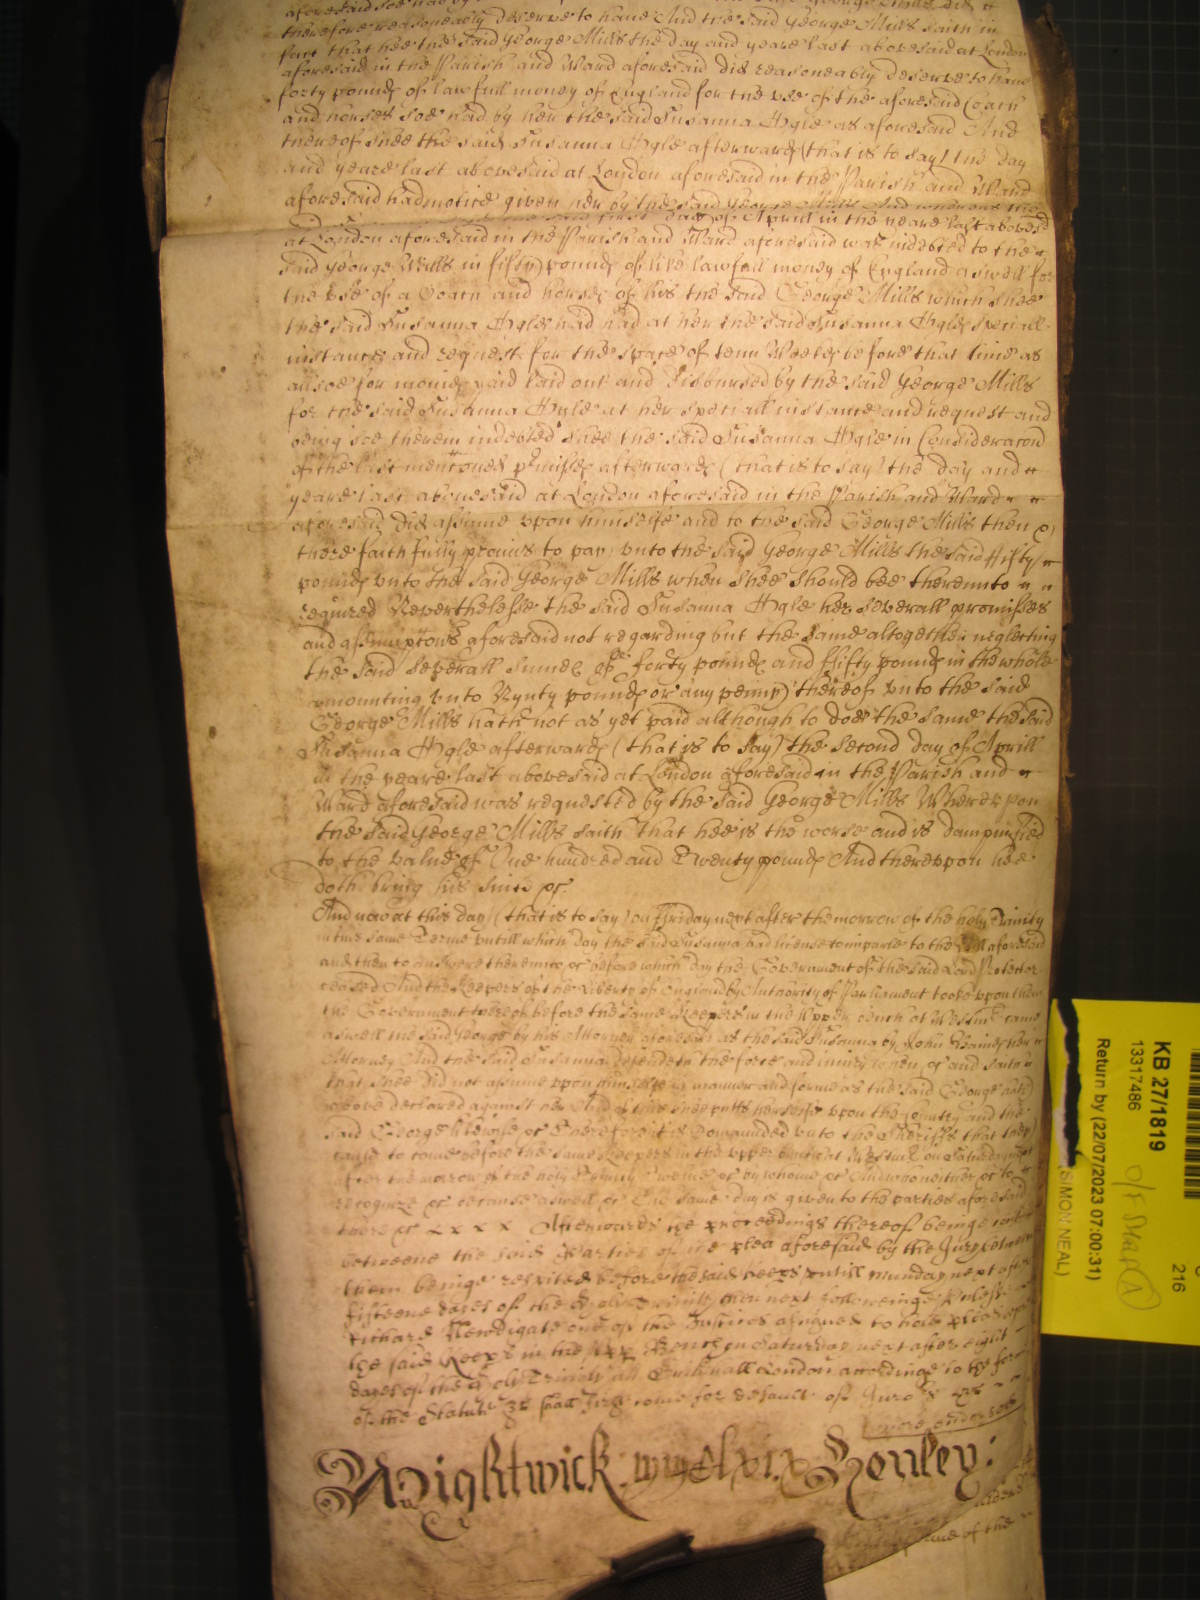 therefore reasoneably deserve to have And the said George Mills saith in
fact that hee the said George Mills the day and yeare last abovesaid at London
aforesaid in the Parish and Ward aforesaid did reasoneably deserve to have
forty pounds of lawfull money of England for the use of the aforesaid Coach
and horses soe had by her the said Susanna Hyle as aforesaid And
thereof shee the said Susanna Hyle afterwards (that is to say) the day
and yeare last abovesaid at London aforesaid in the Parish and Ward
aforesaid had notice given her by the said George Mills And whereas the
first day of Aprill in the yeare last abovesd
at London aforesaid in the Parish and Ward aforesaid was indebted to the
said George Mills in fifty pounds of like lawfull money of England aswell for
the use of a Coach and horses of his the said George Mills which shee
the said Susanna Hyle had had at her the said Susanna Hyles speciall
instance and request for the space of tenn Weekes before that time as
alsoe for monies paid laid out and disbursed by the said George Mills
for the said Susanna Hyle at her speciall instance and request and
being soe therein indebted shee the said Susanna Hyle in Consideracon
of the last mentoned pmisses afterwards (that is to say) the day and
yeare last abovesaid at London aforesaid in the Parish and Ward
aforesaid did assume upon himselfe and to the said George Mills then &
there faithfully promis to pay unto the said George Mills the said ffifty
pounds unto the said George Mills when shee should bee thereunto
required Neverthelesse the said Susanna Hyle her severall promisses
and assumptions aforesaid not regarding but the same altogether neglecting
the said severall summes of forty pounds and ffifty pounds in the whole
amounting unto Nynty pounds or any penny thereof unto the said
George Mills hath not as yet paid although to doe the same the said
Susanna Hyle afterwards (that is to say) the second day of Aprill
in the yeare last abovesaid at London aforesaid in the Parish and
Ward aforesaid was requested by the said George Mills Whereupon
the said George Mills saith That hee is the worse and is dampnified
to the value of One hundred and Twenty pounds And thereupon hee
doth bring his suite &c
And now at this day (that is to say) on Friday next after the morrow of the holy Trinity
in this same Terme untill which day the said Susanna had license to imparle to the Bill aforesaid
and then to answere thereunto &c before which day the Government of the said Lord Protector
ceased And the Keepers of the Liberty of England by Authority of Parliament tooke upon them
the Government thereof before the same Keepers in the Upper bench at Westmr came
aswell the said George by his Attorney aforesaid as the said Susanna by John her
Attorney And the said Susanna defendeth the force and iniury when &c and saith
that shee did not assume upon himselfe in manner and forme as the said George hath
above declared against her And of this shee putts herselfe upon the Country and the
said George likewise &c Therefore it is Comaunded unto the Sheriffs that they
cause to come before the same Keepers in the upper bench at Westmr on Saturday next
after the morrow of the holy Trinity twelve &c by whome &c And who neither &c to
recognize &c because aswell &c The same day is given to the parties aforesaid
there &c x x x x Afterwards the proceedings thereof beinge
betweene the said Parties of the plea aforesaid by the Jury betweene
them beinge respited before the said Keeps untill munday next after
fifteene dayes of the holy Trinity then next followeinge Unless
Richard Newdigate one of the Justices assigned to hold pleas
the said Keeps in the upp Bench on Saturday next after eight
dayes of the holy Trinity att Guildhall London accordinge to the forme
of the Statute &c shall first come for default of Juro
Wightwick: mmclxix Henley:
KB 27/1819
13317486
Return by (22/07/2023 07:00:31)
(SIMON NEAL)
216